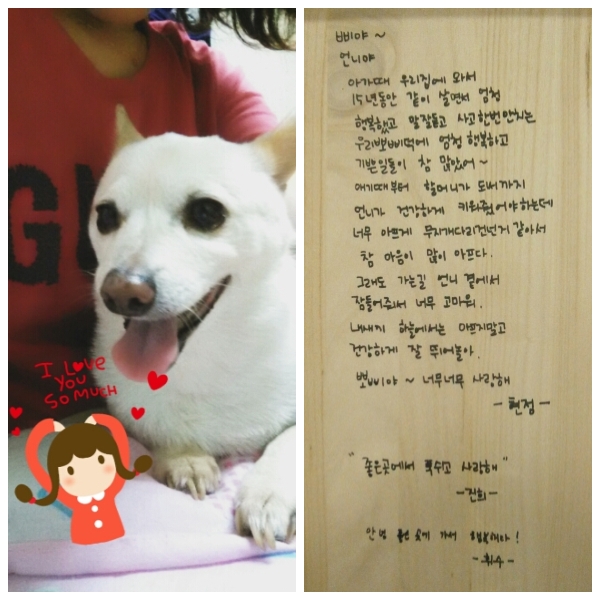 I Love
You
So Much
삐야 ~
언니야
아가때 우리집에 와서
15년동안 같이 살면서 엄청
행복했고 말잘듣고 사고한번안치는
우리뽀삐덕에 엄청 행복하고
기쁜일들이 참 많았어~
애기때부터 할머니가 도써까지
언니가 건강하게 키워줬어야하는데
너무 아프게 무지개다리건넌거 같아서
참 마음이 많이 아프다.
그래도 가는길 언니 곁에서
잠들어줘서 너무 고마워.
내새끼 하늘에서는 아프지말고
건강하게 잘 뛰어놀아.
뽀삐야~ 너무너무 사랑해
- 현정 -
"좋은곳에서 푹쉬고 사랑해"
- 진희 -
안녕 곳에 가서
- 휘수 -